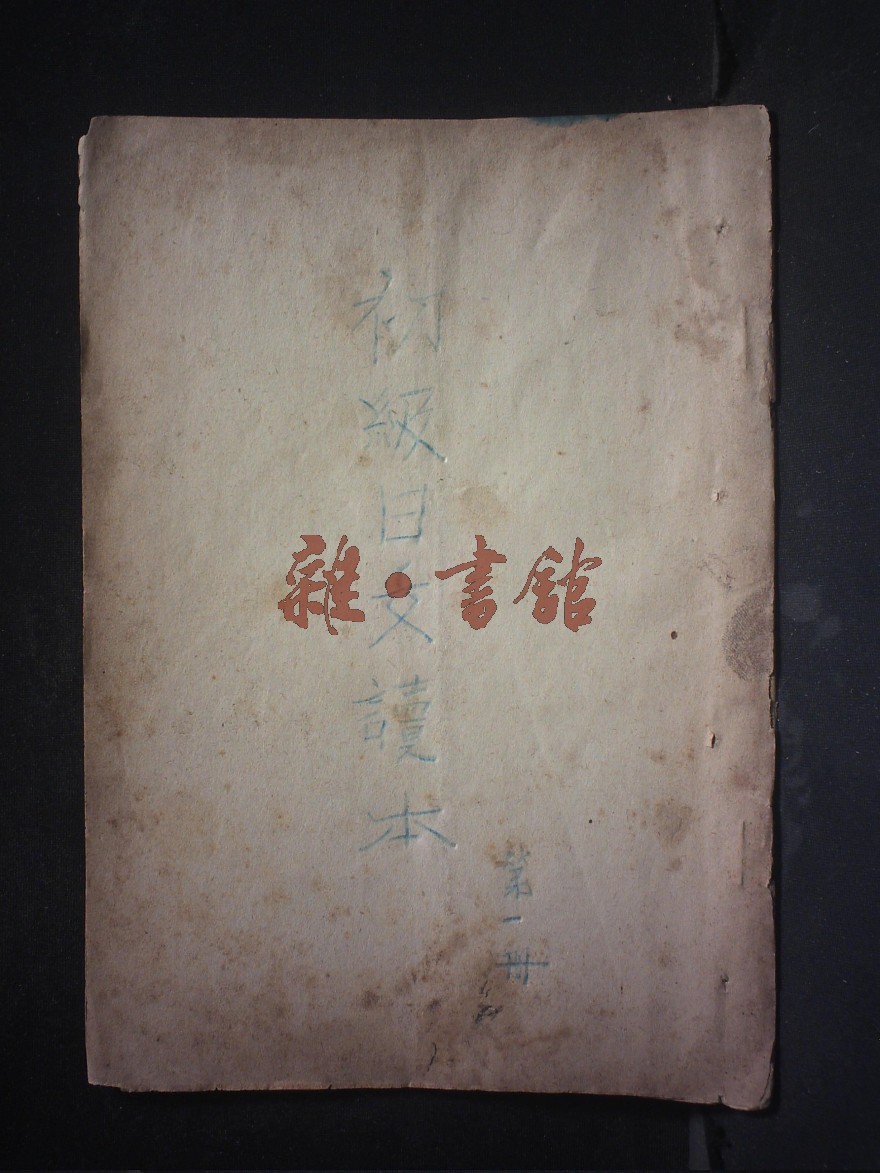 初級日文讀本
第一冊
雜·書館